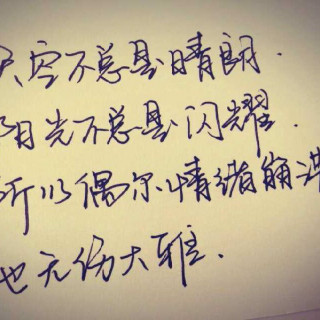 天空不总是晴朗.
阳光不总是闪耀.
所以偶尔情绪崩溃
也无伤大雅.